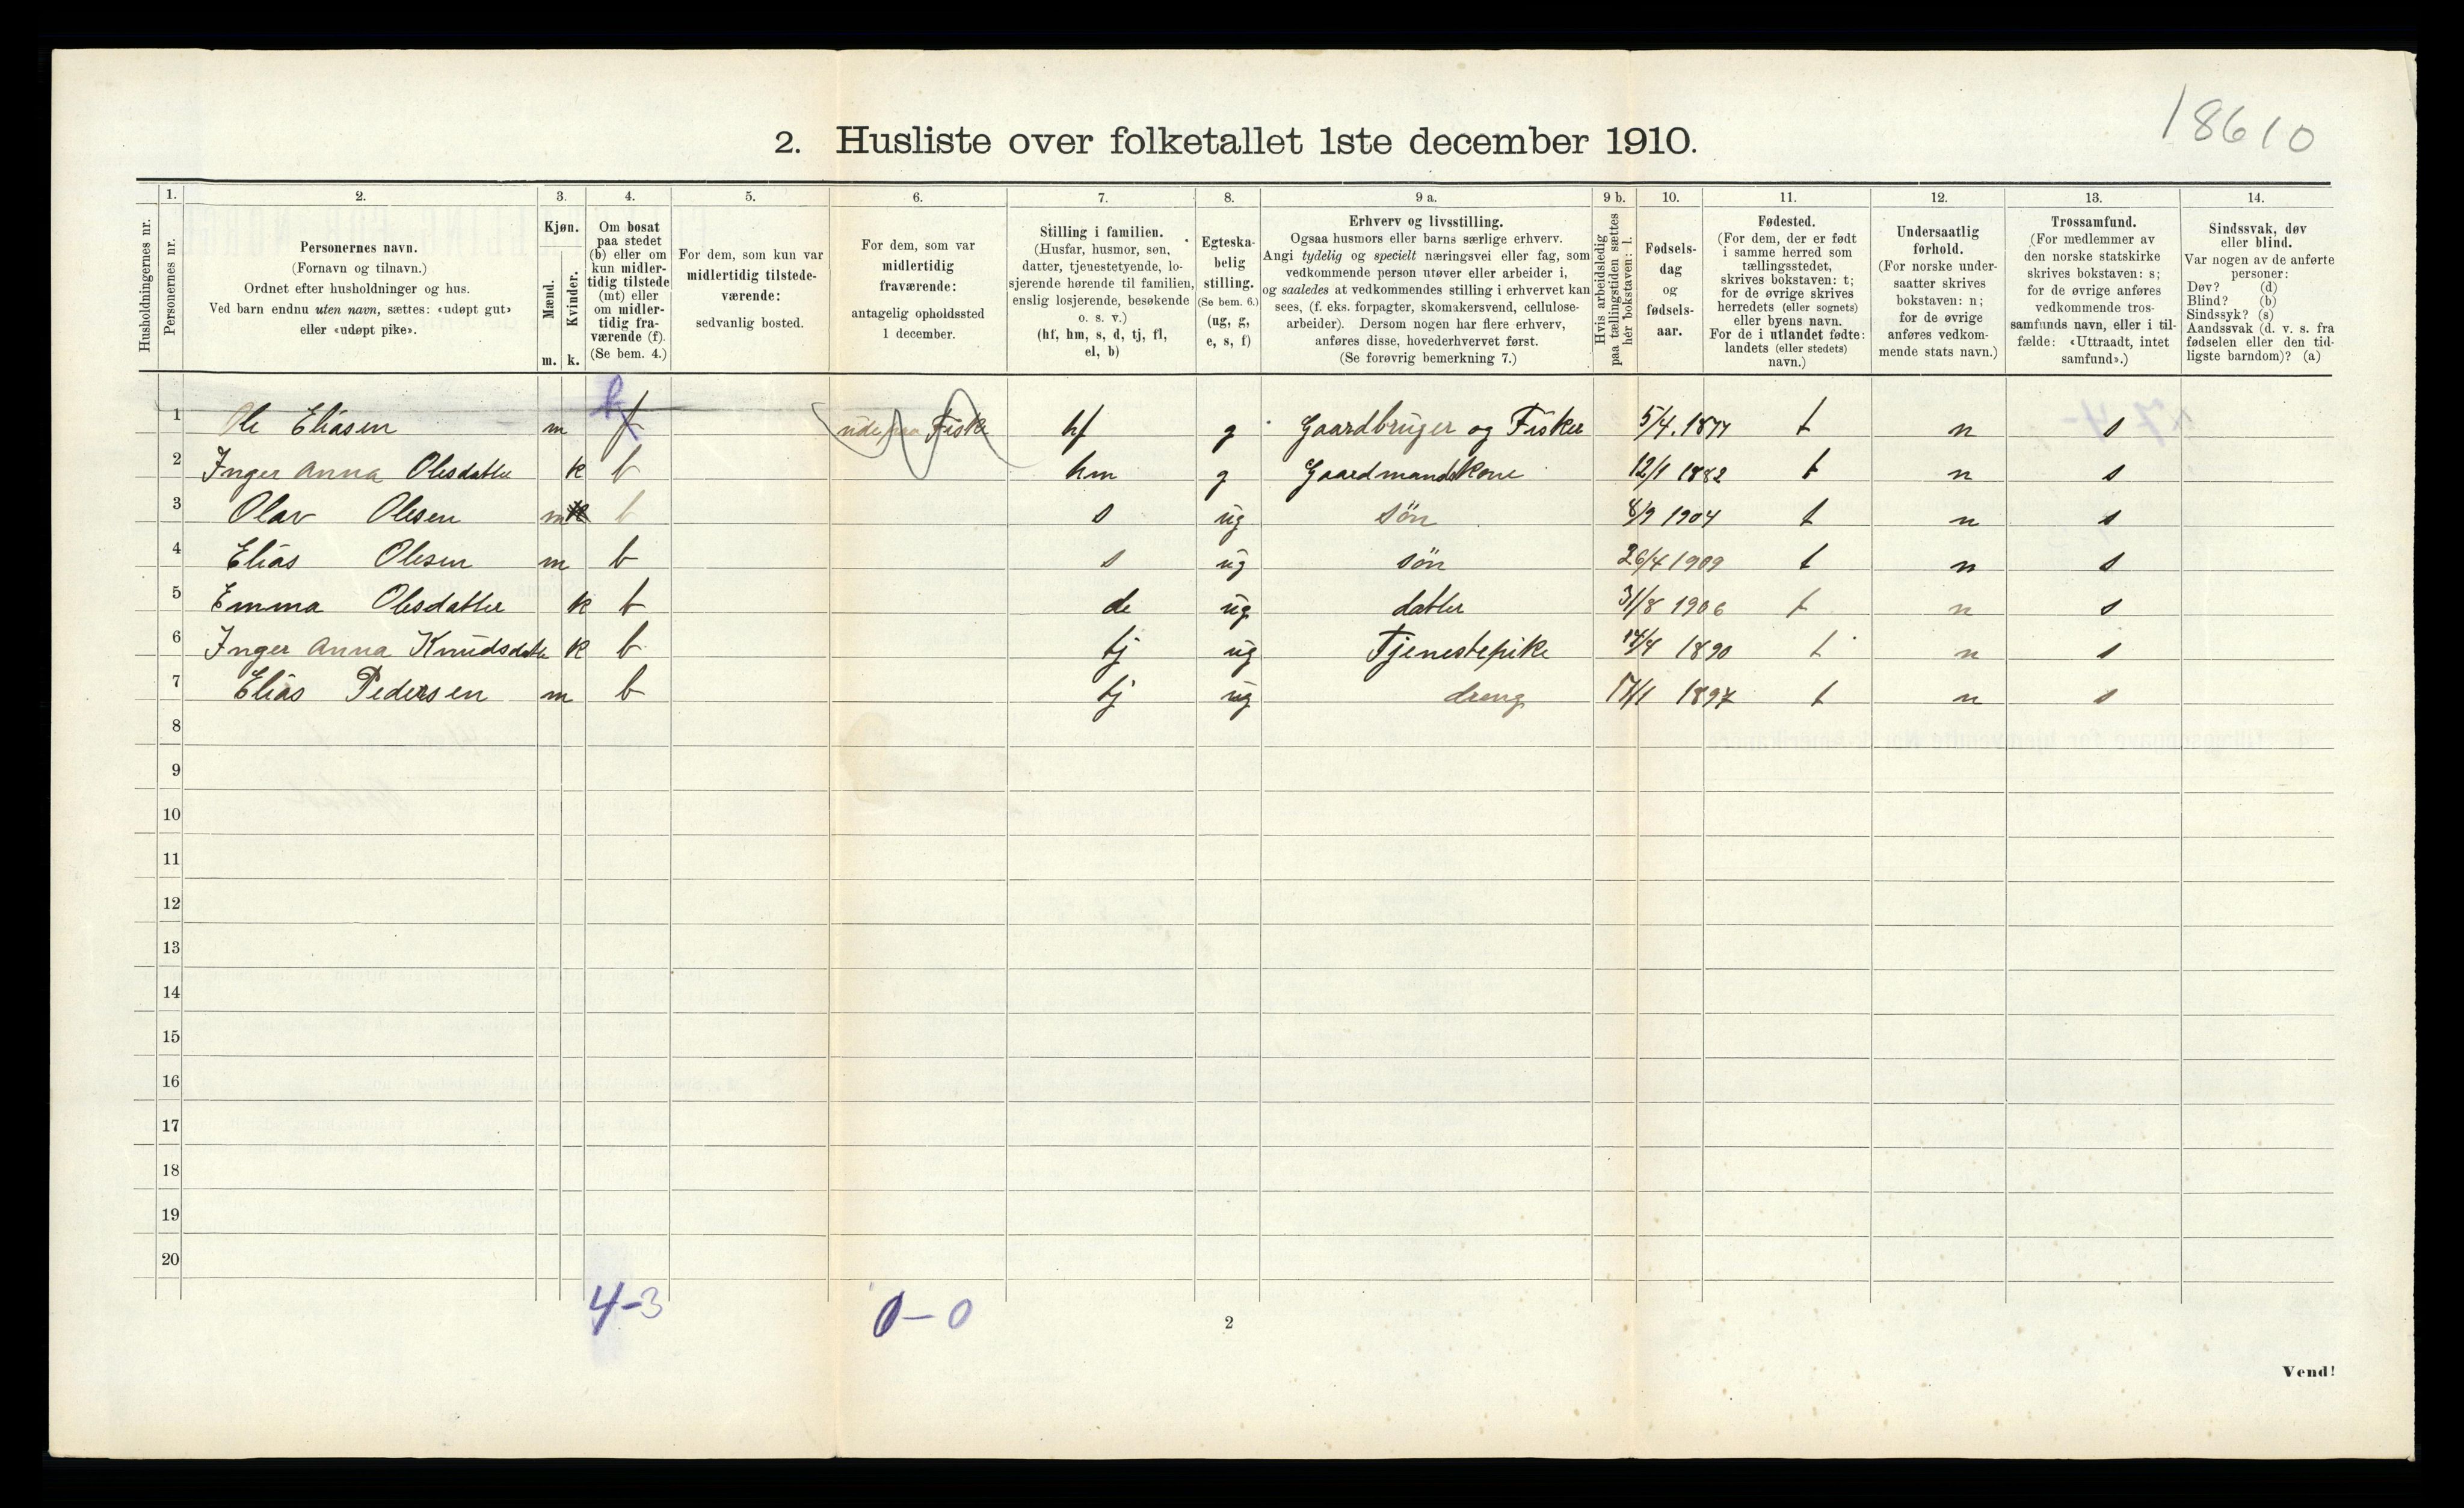 18610
2. Husliste over folketallet 1ste december 1910.
Husholdningernes nr.
1.
Personernes nr.
2.
Personernes navn.
(Fornavn og tilnavn.)
Ordnet efter husholdninger og hus.
Ved barn endnu uten navn, sættes: «udøpt gut»
eller «udøpt pike».
3.
Kjøn.
Mænd.
Kvinder.
m. k.
4.
Om bosat
paa stedet
(b) eller om
kun midler-
tidig tilstede
(mt) eller
om midler-
tidig fra-
værende (f).
(Se bem. 4.)
5.
For dem, som kun var
midlertidig tilstede-
værende:
sedvanlig bosted.
6.
For dem, som var
midlertidig
fraværende:
antagelig opholdssted
1 december.
7.
Stilling i familien.
(Husfar, husmor, søn,
datter, tjenestetyende, lo-
sjerende hørende til familien,
enslig losjerende, besøkende
o. s. v.)
(hf, hm, s, d, tj, fl,
el, b)
8.
Egteska-
belig
stilling.
(Se bem. 6.)
(ug, g,
e, s, f)
9 a.
Erhverv og livsstilling.
Ogsaa husmors eller barns særlige erhverv.
Angi tydelig og specielt næringsvei eller fag, som
vedkommende person utøver eller arbeider i,
og saaledes at vedkommendes stilling i erhvervet kan
sees, (f. eks. forpagter, skomakersvend, cellulose-
arbeider). Dersom nogen har flere erhverv,
anføres disse, hovederhvervet først.
(Se forøvrig bemerkning 7.)
9 b.
Hvis arbeidsledig
paa tællingstiden sættes
her bokstaven: l.
10.
Fødsels-
dag
og
fødsels-
aar.
11.
Fødested.
(For dem, der er født
i samme herred som
tællingsstedet,
skrives bokstaven: t;
for de øvrige skrives
herredets (eller sognets)
eller byens navn.
For de i utlandet fødte:
landets (eller stedets)
navn.)
12.
Undersaatlig
forhold.
(For norske under-
saatter skrives
bokstaven: n;
for de øvrige
anføres vedkom-
mende stats navn.)
13.
Trossamfund.
(For medlemmer av
den norske statskirke
skrives bokstaven: s;
for de øvrige anføres
vedkommende tros-
samfunds navn, eller i til-
fælde: «Uttraadt, intet
samfund».)
14.
Sindssvak, døv
eller blind.
Var nogen av de anførte
personer:
Døv? (d)
Blind? (b)
Sindssyk? (s)
Aandssvak (d. v. s. fra
fødselen eller den tid-
ligste barndom)? (a)
b
1 Ole Eliasen m f ude paa Fiske hf g Gaardbruger og Fisker 5/4. 1877 t n s
2 Inger Anna Olesdatter k b hm g Gaardmandskone 12/1 1882 t n s
3 Olav Olesen m k b s ug søn 8/9 1904 t n s
4 Elias Olesen m b s ug søn 26/4 1909 t n s
5 Emma Olesdatter k b de ug datter 31/8 1906 t n s
6 Inger Anna Knudsdatter k b tj ug Tjenestepike 14/4 1890 t n s
7 Elias Pedersen m b tj ug dreng 17/1 1897 t n s
8
9
10
11
12
13
14
15
16
17
18
19
20
4-3 0-0
2
Vend!